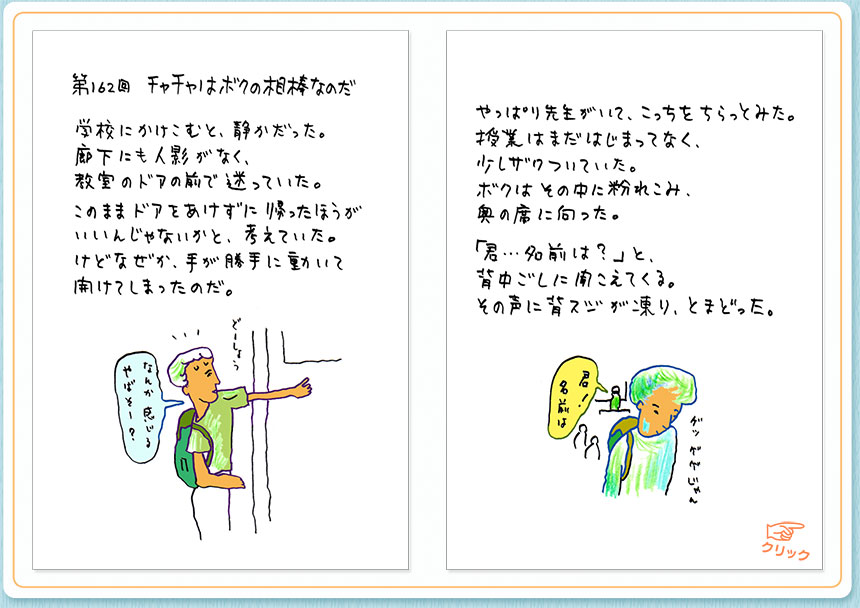 第162回 チャチャはボクの相棒なのだ
学校にかけこむと、静かだった。
廊下にも人影がなく、
教室のドアの前で迷っていた。
このままドアをあけずに帰ったほうが
いいんじゃないかと、考えていた。
けどなぜか、手が勝手に動いて
開けてしまったのだ。
どーしょう
なんか感じる
やばそー?
やっぱり先生がいて、こっちをちらっとみた。
授業はまだはじまってなく、
少しザワついていた。
ボクはその中に粉れこみ、
奥の席に向った。
「君…名前は?」と、
背中ごしに聞こえてくる。
その声に背スジが凍り、とまどった。
君!
名前は
ゲッ ゲゲじゃん
クリック